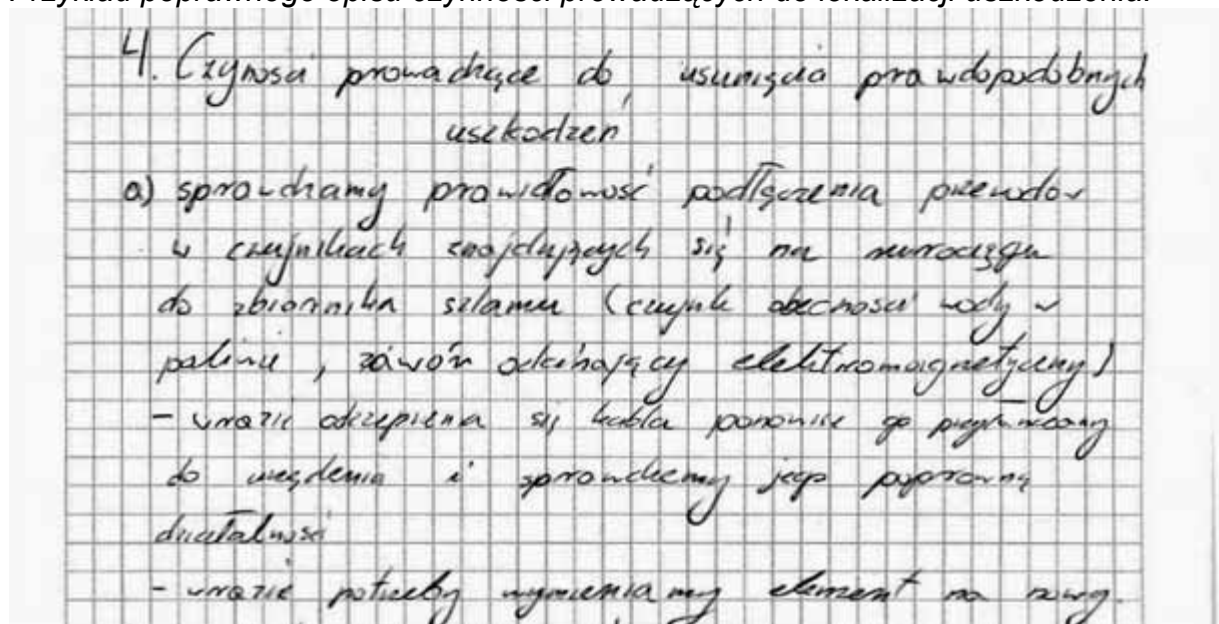 Przykład poprawnego opisu czynności prowadzących do lokalizacji uszkodzenia:
4. Czynności prowadzące do usunięcia prawdopodobnych
uszkodzeń
a) sprawdzamy prawidłowość podłączenia przewodów
w czujnikach znajdujących się na rurociągu
do zbiornika szlamu (czujnik obecności wody w
paliwie, zawór odcinający elektromagnetyczny)
- wrazie odczepienia się kabla ponownie go przykręcamy
do urządzenia i sprawdzamy jego poprawną
działalność
- wrazie potrzeby wymieniamy element na nowy.